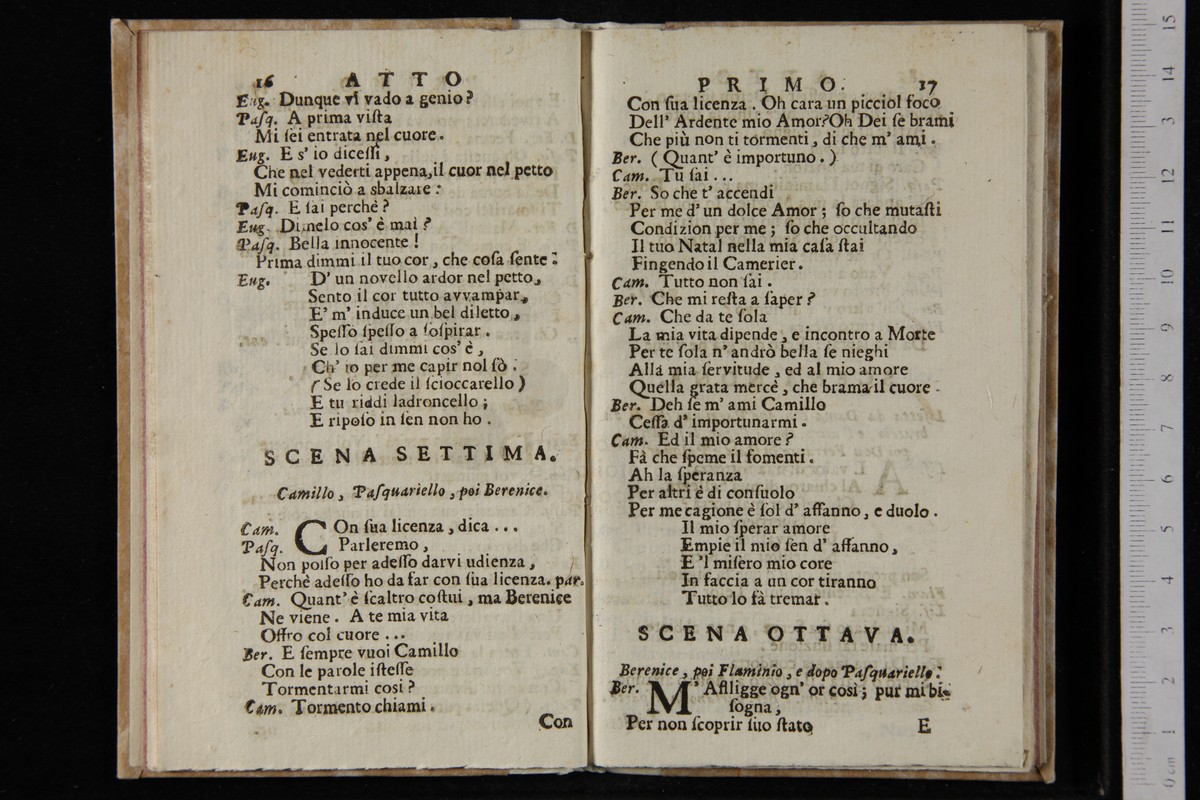 16 ATTO
Eug. Dunque vi vado a genio?
Pasq. A prima viſta
Mi ſei entrata nel cuore.
Eug. E s' io diceſſi,
Che nel vederti appena, il cuor nel petto
Mi cominciò a sbalzare:
Pasq. E ſai perchè?
Eug. Dimelo cos' è mai?
Pasq. Bella innocente!
Prima dimmi il tuo cor, che coſa ſente:
Eug. D' un novello ardor nel petto,
Sento il cor tutto avvampar,
E' m' induce un bel diletto,
Speſſo ſpeſſo a ſoſpirar.
Se lo ſai dimmi cos' è,
Ch' io per me capir nol ſò.
(Se lo crede il ſcioccarello)
E tu riddi ladroncello;
E ripoſo in ſen non ho.
SCENA SETTIMA.
Camillo, Paſquariello, poi Berenice.
Cam. COn ſua licenza, dica...
Paſq. Parleremo,
Non poſſo per adeſſo darvi udienza,
Perchè adeſſo ho da far con ſua licenza. par.
Cam. Quant' è ſcaltro coſtui, ma Berenice
Ne viene. A te mia vita
Offro col cuore...
Ber. E ſempre vuoi Camillo
Con le parole iſteſſe
Tormentarmi così?
Cam. Tormento chiami.
Con
PRIMO. 17
Con ſua licenza. Oh cara un picciol foco
Dell' Ardente mio Amor? Oh Dei ſe brami
Che più non ti tormenti, di che m' ami.
Ber. (Quant' è importuno.)
Cam. Tu ſai...
Ber. So che t' accendi
Per me d' un dolce Amor; ſo che mutaſti
Condizion per me; ſo che occultando
Il tuo Natal nella mia caſa ſtai
Fingendo il Camerier.
Cam. Tutto non ſai.
Ber. Che mi reſta a ſaper?
Cam. Che da te ſola
La mia vita dipende, e incontro a Morte
Per te ſola n' andrò bella ſe nieghi
Alla mia ſervitude, ed al mio amore
Quella grata mercè, che brama il cuore.
Ber. Deh ſe m' ami Camillo
Ceſſa d' importunarmi.
Cam. Ed il mio amore?
Fà che ſpeme il fomenti.
Ah la ſperanza
Per altri è di conſuolo
Per me cagione è ſol d' affanno, e duolo.
Il mio ſperar amore
Empie il mio ſen d' affanno,
E 'l miſero mio core
In faccia a un cor tiranno
Tutto lo fà tremar.
SCENA OTTAVA.
Berenice, poi Flaminio, e dopo Paſquariello:
Ber. M' Affligge ogn' or così; pur mi bi-
ſogna,
Per non ſcoprir ſuo ſtato
E